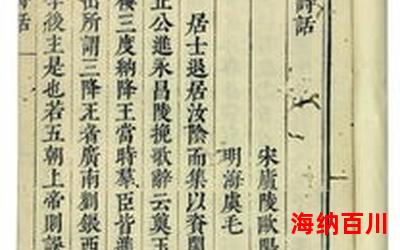 詩話
宋廬陵歐陽
明海虞毛
居士退居汝陰而集以資閒
正公進永昌陵挽歌辭云奠玉
樓三度納降王當時羣臣皆進
出所謂三降王者廣南劉鋹西
後主是也若五朝上帝則誤
詩話
海纳百川